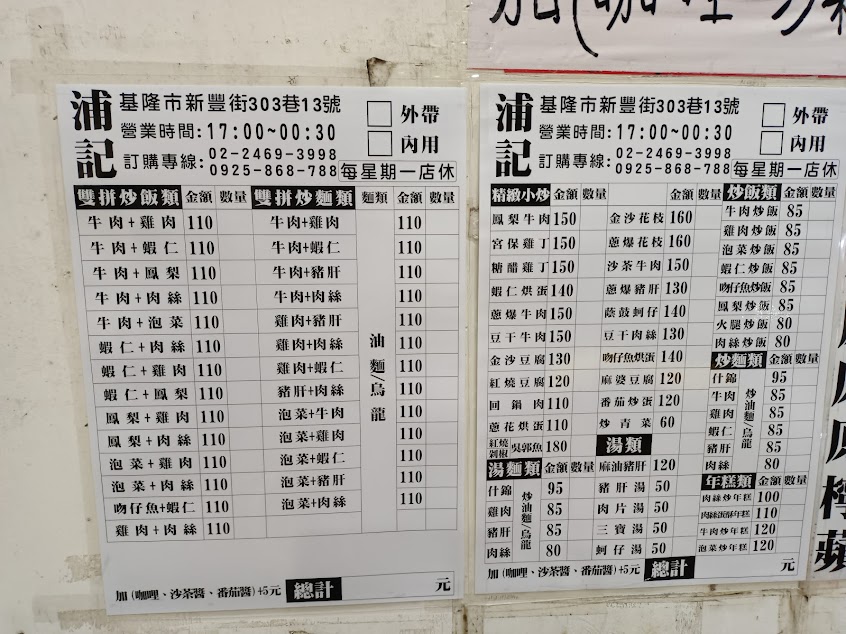 浦記
基隆市新豐街303巷13號
營業時間:17:00~00:30
訂購專線:02-2469-3998
0925-868-788
外帶
內用
每星期一店休
雙拼炒飯類 金額 數量 雙拼炒麵類 麵類 金額 數量
牛肉+雞肉 110 牛肉+雞肉 110
牛肉+蝦仁 110 牛肉+蝦仁 110
牛肉+鳳梨 110 牛肉+豬肝 110
牛肉+肉絲 110 牛肉+肉絲 110
牛肉+泡菜 110 雞肉+豬肝 110
蝦仁+肉絲 110 雞肉+肉絲 110
蝦仁+雞肉 110 雞肉+蝦仁 110
蝦仁+鳳梨 110 豬肝+肉絲 110
鳳梨+雞肉 110 泡菜+牛肉 110
鳳梨+肉絲 110 泡菜+雞肉 110
泡菜+雞肉 110 泡菜+蝦仁 110
泡菜+肉絲 110 泡菜+豬肝 110
吻仔魚+蝦仁 110 泡菜+肉絲 110
雞肉+肉絲 110
油麵/烏龍
加(咖哩、沙茶醬、番茄醬)+5元 總計 元
浦記
基隆市新豐街303巷13號
營業時間:17:00~00:30
訂購專線:02-2469-3998
0925-868-788
外帶
內用
每星期一店休
精緻小炒 金額 數量 金額 數量
鳳梨牛肉 150 金沙花枝 160
宮保雞丁 150 蔥爆花枝 160
糖醋雞丁 150 沙茶牛肉 150
蝦仁烘蛋 140 蔥爆豬肝 130
蔥爆牛肉 150 蔭鼓蚵仔 140
豆干牛肉 150 豆干肉絲 130
金沙豆腐 130 吻仔魚烘蛋 140
紅燒豆腐 120 麻婆豆腐 120
回鍋肉 110 番茄炒蛋 120
蔥花烘蛋 110 炒青菜 60
紅燒剁椒吳郭魚 180
湯類
湯麵類 金額 數量 麻油豬肝 120
什錦 95 豬肝湯 50
雞肉 85 肉片湯 50
豬肝 85 三寶湯 50
肉絲 80 蚵仔湯 50
炒油麵/烏龍
炒飯類 金額 數量
牛肉炒飯 85
雞肉炒飯 85
泡菜炒飯 85
蝦仁炒飯 85
吻仔魚炒飯 85
鳳梨炒飯 85
火腿炒飯 80
肉絲炒飯 80
炒麵類 金額 數量
什錦 95
牛肉 85
雞肉 85
蝦仁 85
豬肝 85
肉絲 80
炒油麵/烏龍
年糕類 金額 數量
肉絲炒年糕 100
110
牛肉炒年糕 120
泡菜炒年糕 120
加(咖哩、沙茶醬、番茄醬)+5元 總計 元